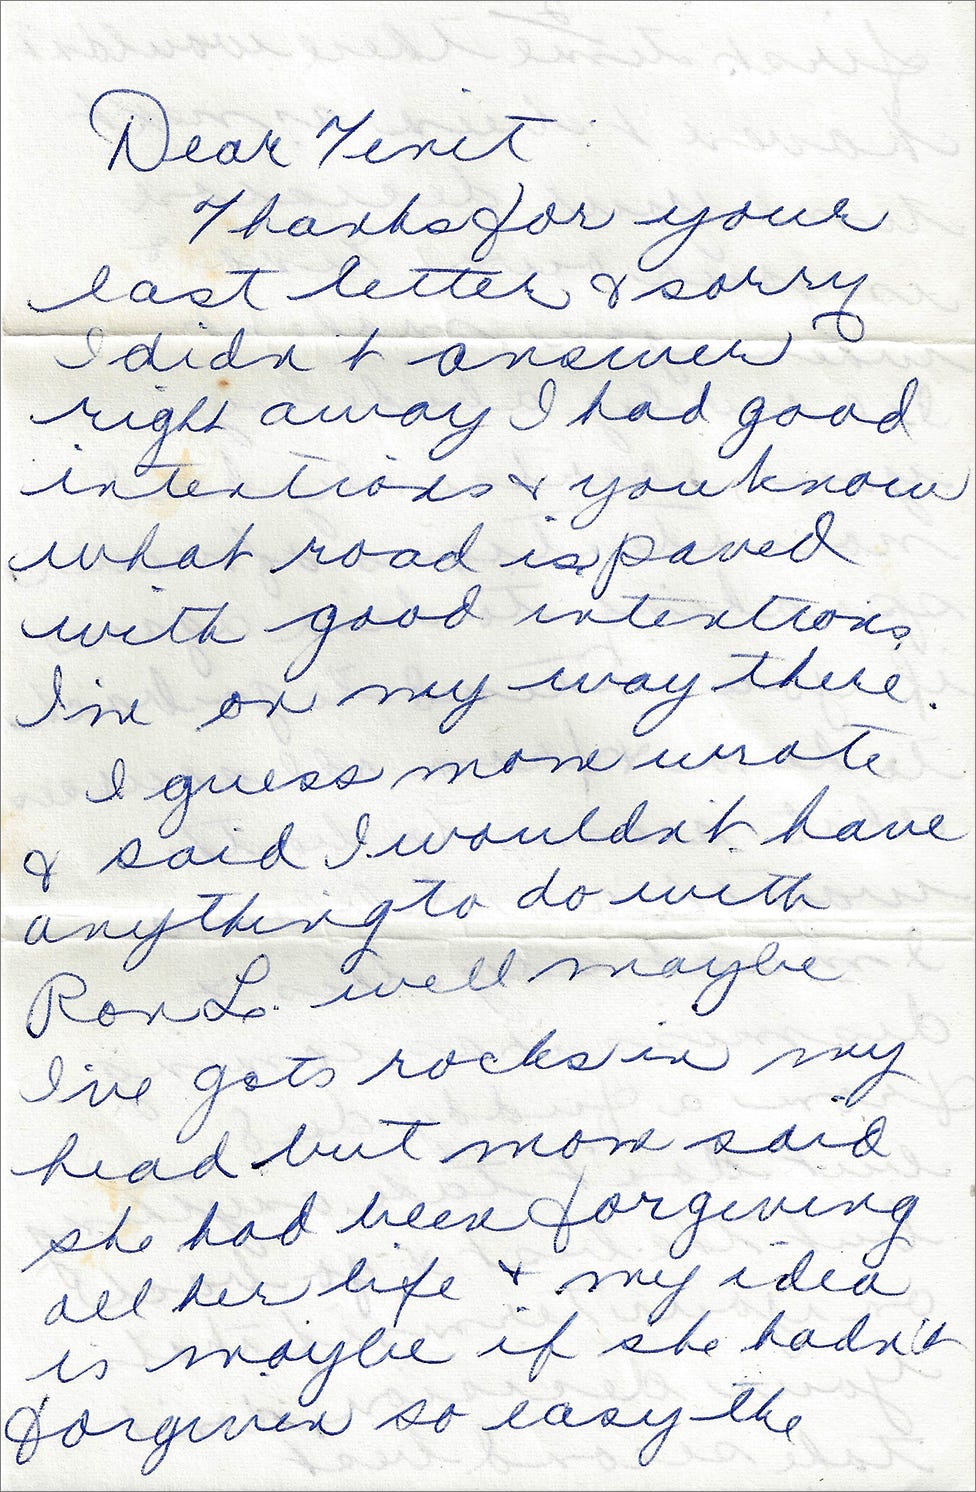 Dear Tenit:
Thanks for your
last letter & sorry
I didn't answer
right away I had good
intentions & you know
what road is paved
with good intentions.
I'm on my way there.
I guess mom wrote
& said I wouldn't have
anything to do with
Ron L. well maybe
I've gots rocks in my
head but mom said
she had been forgiving
all her life & my idea
is maybe if she hadn't
forgiven so easy the